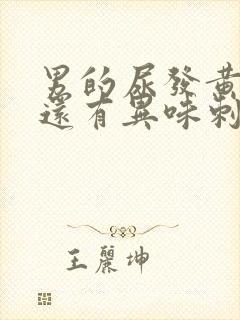 男的尿發黃
還有異味刺
王麗坤